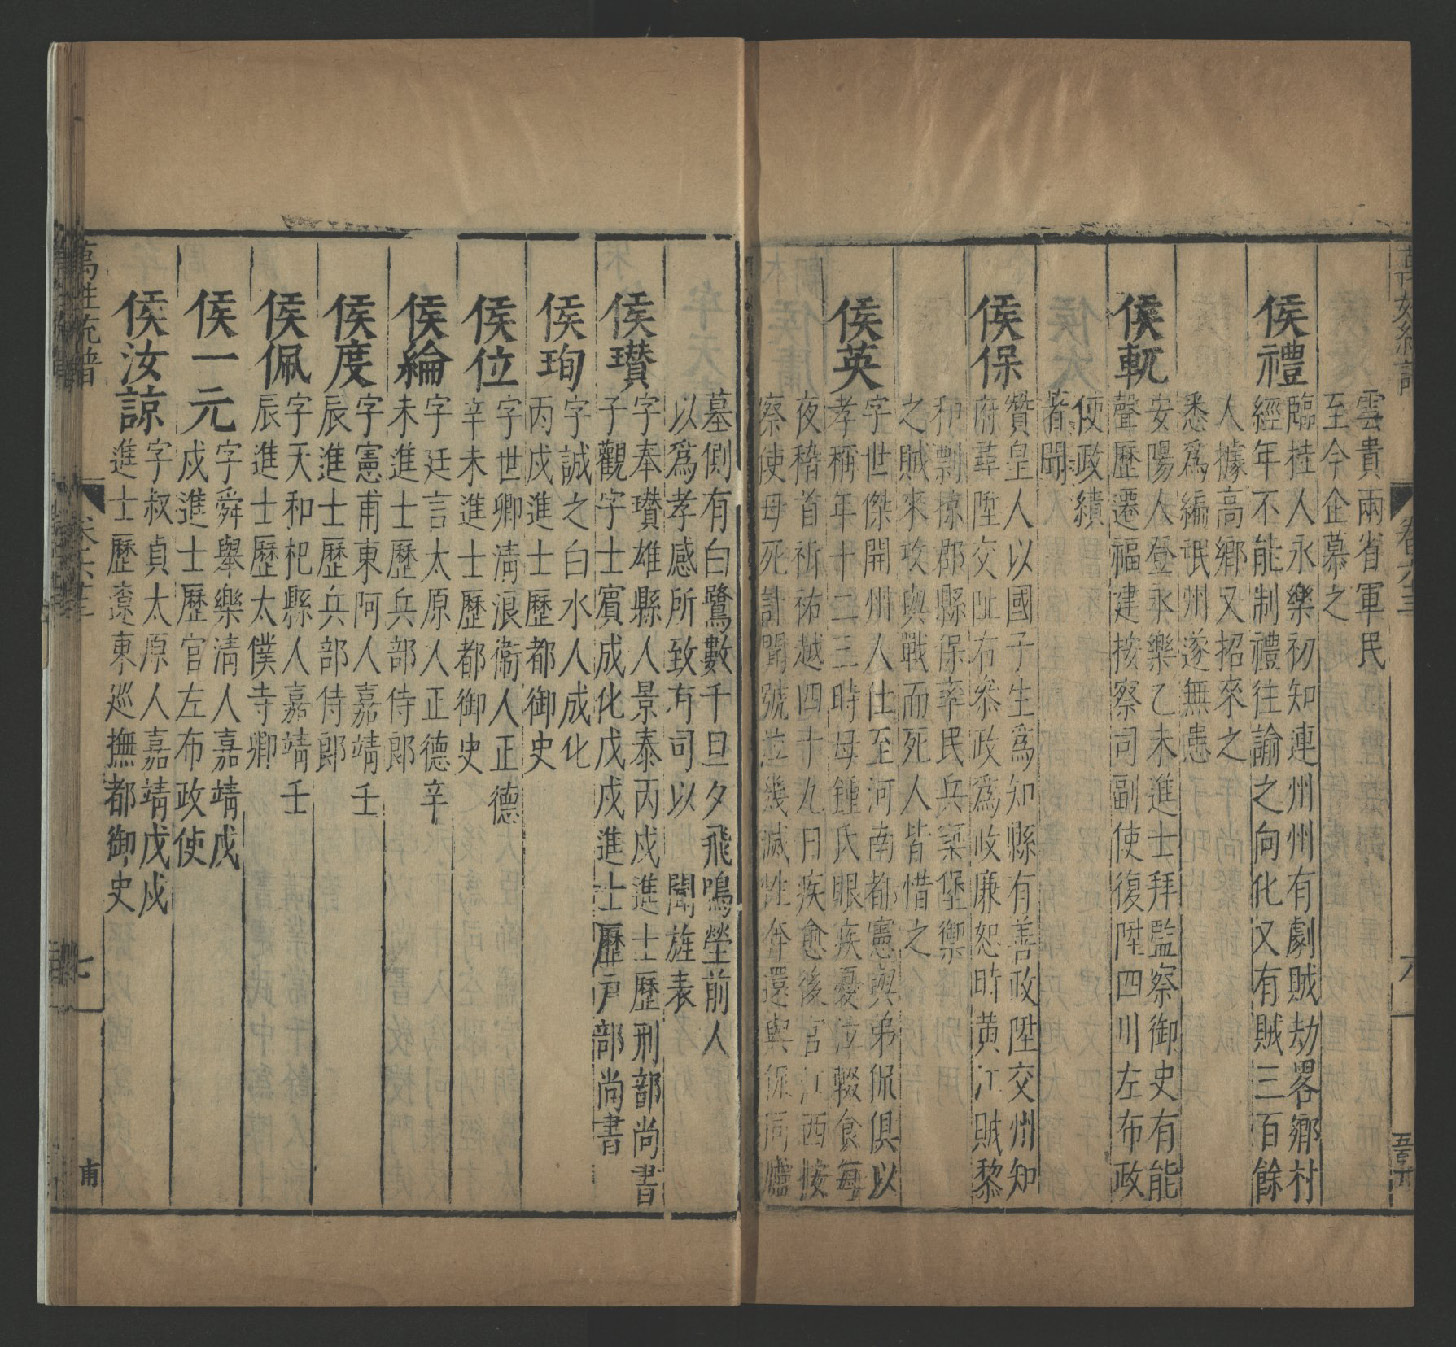 雲貴兩省軍民
至今企慕之
侯禮
臨桂人永樂初知連州州有劇賊劫畧鄉村
經年不能制禮往諭之向化又有賊三百餘
人據高鄉又招來之
悉爲編氓州遂無恙
侯軏
安陽人登永樂乙未進士拜監察御史有能
聲歷遷福建按察司副使復陞四川左布政
使政績
著聞
侯保
贊皇人以國子生爲知縣有善政陞交州知
府葬陞交阯右叅政爲政廉恕時黄江賊黎
和剽掠郡縣保率民兵築堡禦
之賊來攻與戰而死人皆惜之
侯英
字世傑開州人仕至河南都憲與弟侃俱以
孝稱年十二三時母鍾氏眼疾憂泣輟食每
夜稽首祈祐越四十九日疾愈後官江西按
察使母死訃聞號泣幾滅性奔還與侃同廬
墓側有白鷺數千旦夕飛鳴塋前人
以爲孝感所致有司以 聞旌表
侯瓚
字奉瓚雄縣人景泰丙戌進士歷刑部尚書
子觀字士賓成化戊戌進士歷戸部尚書
侯珣
字誠之白水人成化
丙戌進士歷都御史
侯位
字世卿清浪衞人正德
辛未進士歷都御史
侯綸
字廷言太原人正德辛
未進士歷兵部侍郎
侯度
字憲甫東阿人嘉靖壬
辰進士歷兵部侍郎
侯佩
字天和杞縣人嘉靖壬
辰進士歷太僕寺卿
侯一元
字舜舉樂清人嘉靖戊
戌進士歷官左布政使
侯汝諒
字叔貞太原人嘉靖戊戌
進士歷遼東巡撫都御史
萬姓統譜
七
甫